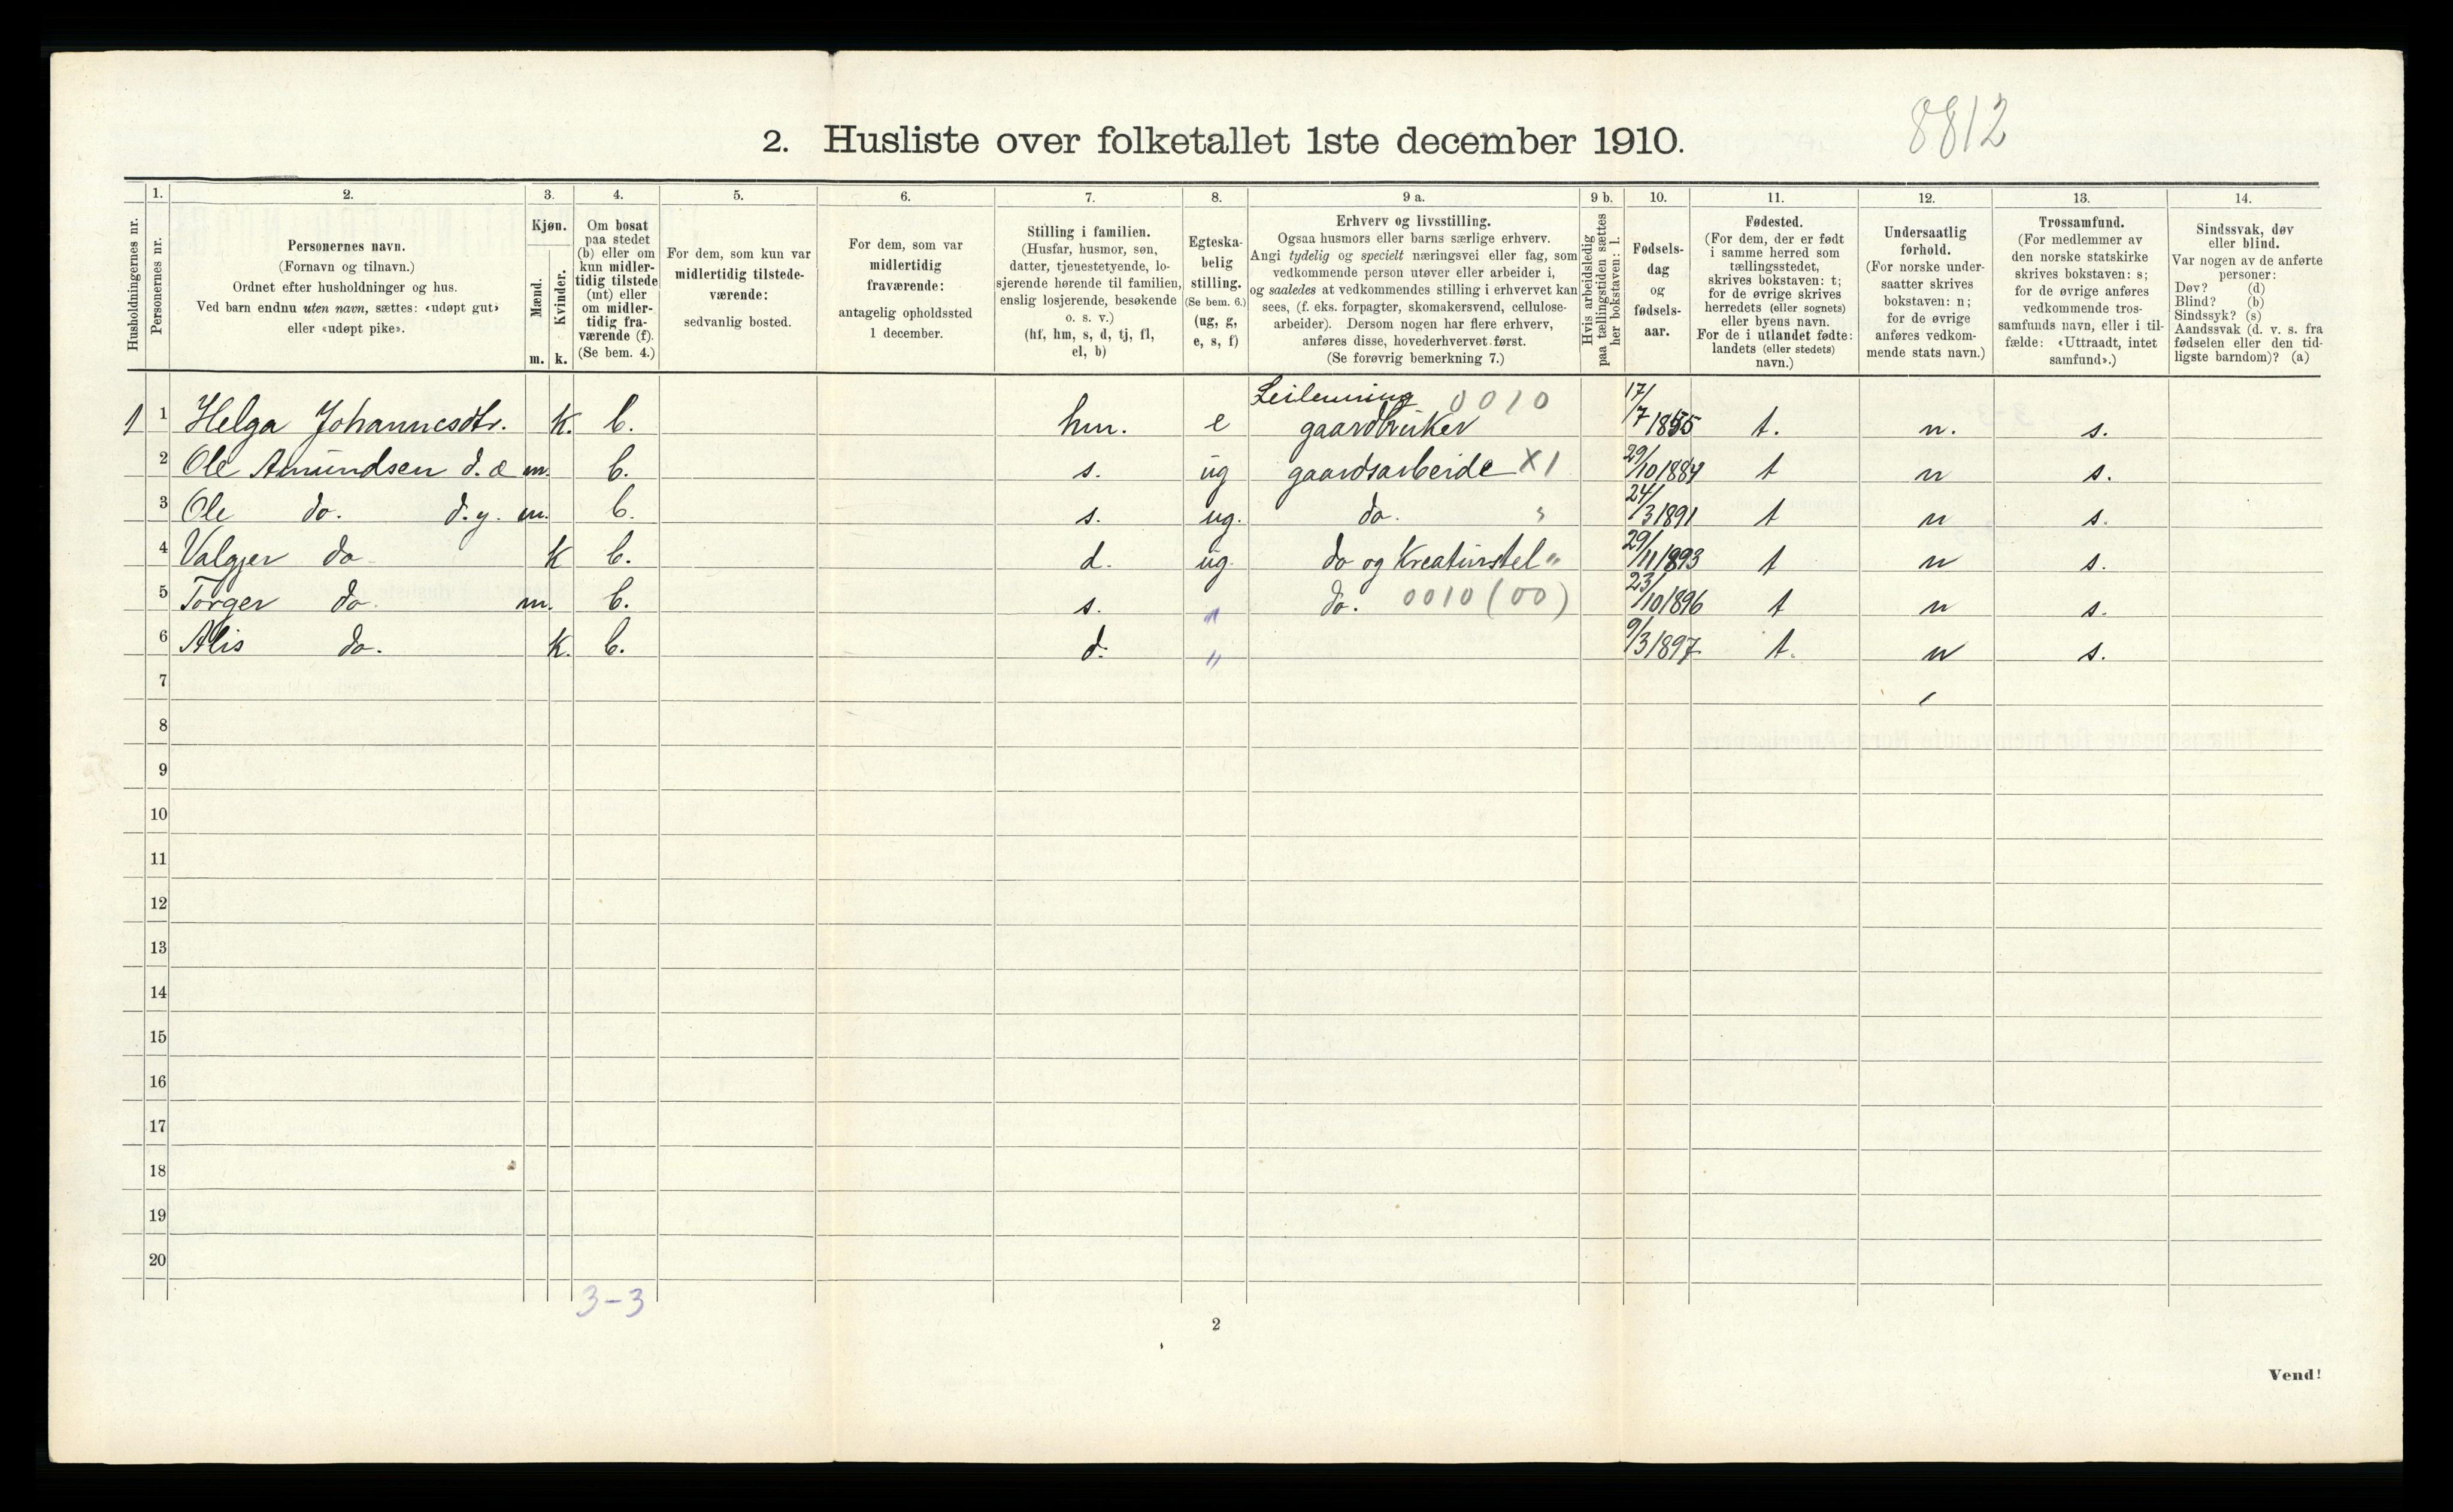 8812
2. Husliste over folketallet 1ste december 1910.
Husholdningernes nr.
1.
Personernes nr.
2.
Personernes navn.
(Fornavn og tilnavn.)
Ordnet efter husholdninger og hus.
Ved barn endnu uten navn, sættes: «udøpt gut»
eller «udøpt pike».
3.
Kjøn.
Mænd.
m.
Kvinder.
k.
4.
Om bosat
paa stedet
(b) eller om
kun midler-
tidig tilstede
(mt) eller
om midler-
tidig fra-
værende (f).
(Se bem. 4.)
5.
For dem, som kun var
midlertidig tilstede-
værende:
sedvanlig bosted.
6.
For dem, som var
midlertidig
fraværende:
antagelig opholdssted
1 december.
7.
Stilling i familien.
(Husfar, husmor, søn,
datter, tjenestetyende, lo-
sjerende hørende til familien,
enslig losjerende, besøkende
o. s. v.)
(hf, hm, s, d, tj, fl,
el, b)
8.
Egteska-
belig
stilling.
(Se bem. 6.)
(ug, g,
e, s, f)
9 a.
Erhverv og livsstilling.
Ogsaa husmors eller barns særlige erhverv.
Angi tydelig og specielt næringsvei eller fag, som
vedkommende person utøver eller arbeider i,
og saaledes at vedkommendes stilling i erhvervet kan
sees, (f. eks. forpagter, skomakersvend, cellulose-
arbeider). Dersom nogen har flere erhverv,
anføres disse, hovederhvervet først.
(Se forøvrig bemerkning 7.)
9 b.
Hvis arbeidsledig
paa tællingstiden sættes
her bokstaven: l.
10.
Fødsels-
dag
og
fødsels-
aar.
11.
Fødested.
(For dem, der er født
i samme herred som
tællingsstedet,
skrives bokstaven: t;
for de øvrige skrives
herredets (eller sognets)
eller byens navn.
For de i utlandet fødte:
landets (eller stedets)
navn.)
12.
Undersaatlig
forhold.
(For norske under-
saatter skrives
bokstaven: n;
for de øvrige
anføres vedkom-
mende stats navn.)
13.
Trossamfund.
(For medlemmer av
den norske statskirke
skrives bokstaven: s;
for de øvrige anføres
vedkommende tros-
samfunds navn, eller i til-
fælde: «Uttraadt, intet
samfund».)
14.
Sindssvak, døv
eller blind.
Var nogen av de anførte
personer:
Døv? (d)
Blind? (b)
Sindssyk? (s)
Aandssvak (d. v. s. fra
fødselen eller den tid-
ligste barndom)? (a)
1 1 Helga Johannesdtr. k. b. hm. e Leilending gaardbruker 0010 17/7 1855 t. n. s.
2 Ole Amundsen d. æ m. b. s. ug gaardsarbeide X1 29/10 1884 t n s.
3 Ole do. d. y. m. b. s. ug. do. " 24/3 1891 t n s.
4 Valgjer do k b. d. ug. do og Kreaturstel " 29/11 1893 t n s.
5 Torger do. m. b. s. " do. 0010 (00) 23/10 1896 t n s.
6 Alis do. k. b. d. " 9/3 1897 t. n s.
7
8
9
10
11
12
13
14
15
16
17
18
19
20
3-3
2
Vend!